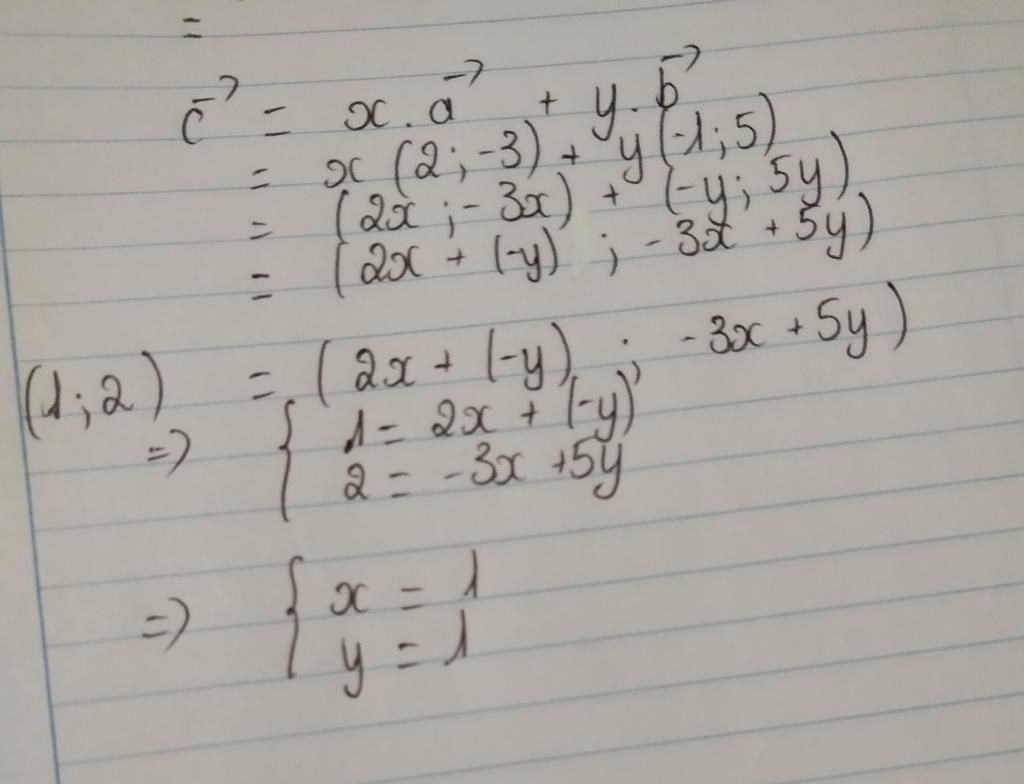 =
c⃗ = x.a⃗ + y.b⃗
= x(2;-3) + y(-1;5)
= (2x;-3x) + (-y;5y)
= (2x + (-y) ; -3x + 5y)
(1;2) = (2x + (-y) ; -3x + 5y)
=> { 1 = 2x + (-y)
2 = -3x + 5y
=> { x = 1
y = 1